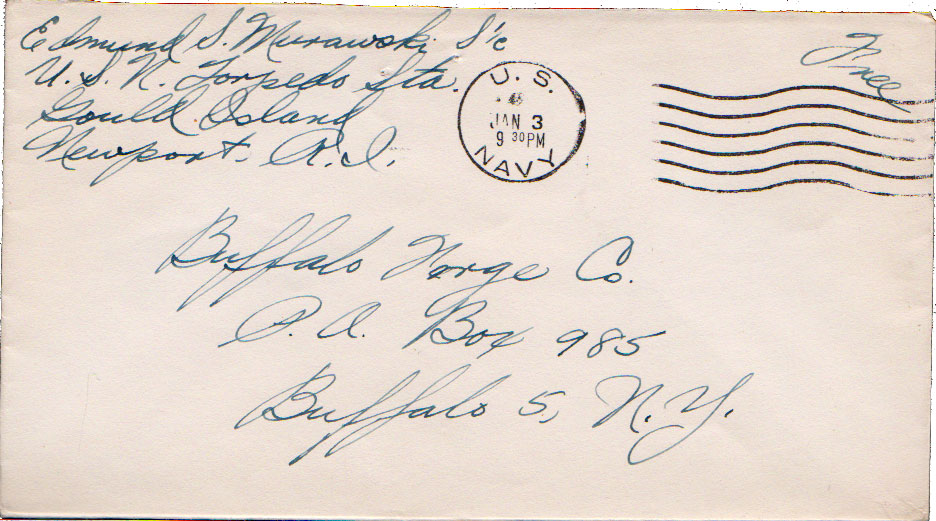 Edmund S. Murawski S1c
U.S.N. Torpedo Sta.
Gould Island
Newport. R.I.
Free
U.S.
JAN 3
9 30 PM
NAVY
Buffalo Forge Co.
P.O. Box 985
Buffalo 5, N.Y.